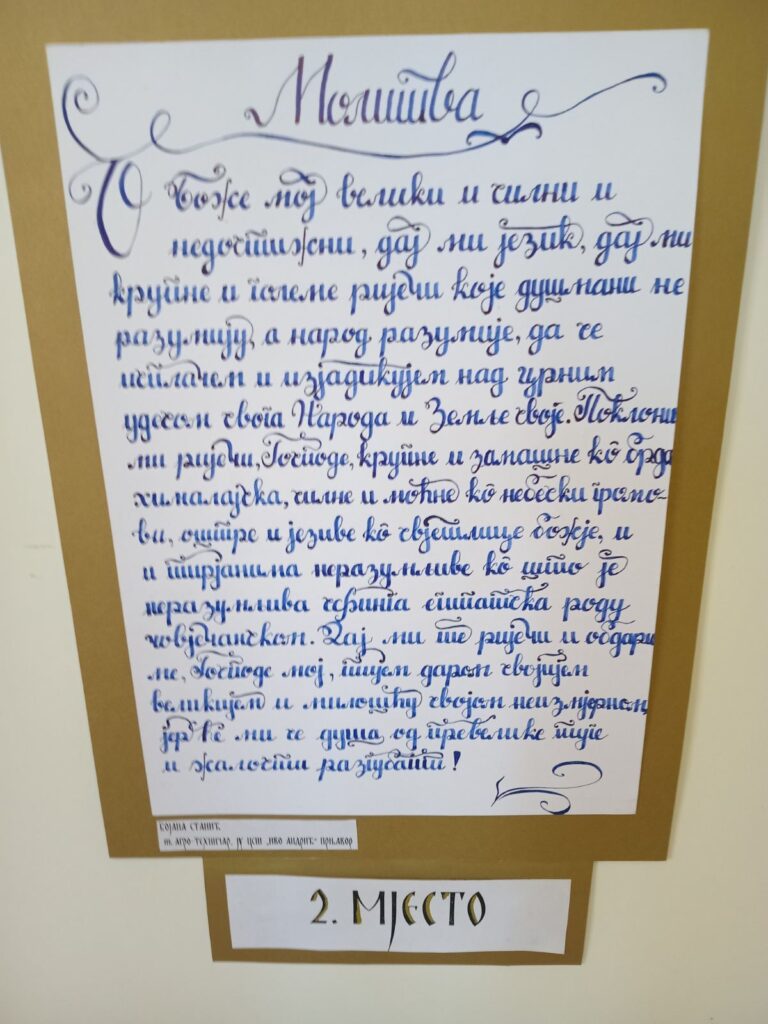 Молитва
О Боже мој велики и силни и
недостижни, дај ми језик, дај ми
крупне и големе ријечи које душмани не
разумију, а народ разумије, да се
исплачем и изјадикујем над црним
удесом свога Народа и Земље своје. Поклони
ми ријечи, Господе, крупне и замашне кô брда
хималајска, силне и моћне кô небески громо-
ви, оштре и језиве кô свјетлице божје, и
и тирјанима неразумљиве кô што је
неразумљива сфинга египатска роду
човјечанском. Дај ми те ријечи и обдари
ме, Господе мој, тијем даром својијем
великијем и милошћу својом неизмјерном,
јер ће ми се душа од превелике туге
и жалости разгубати!
БОЈАНА СТАНИЋ
т. АГРО ТЕХНИЧАР, ЈУ ЦСШ „ИВО АНДРИЋ" ПРЊАВОР
2. МЈЕСТО